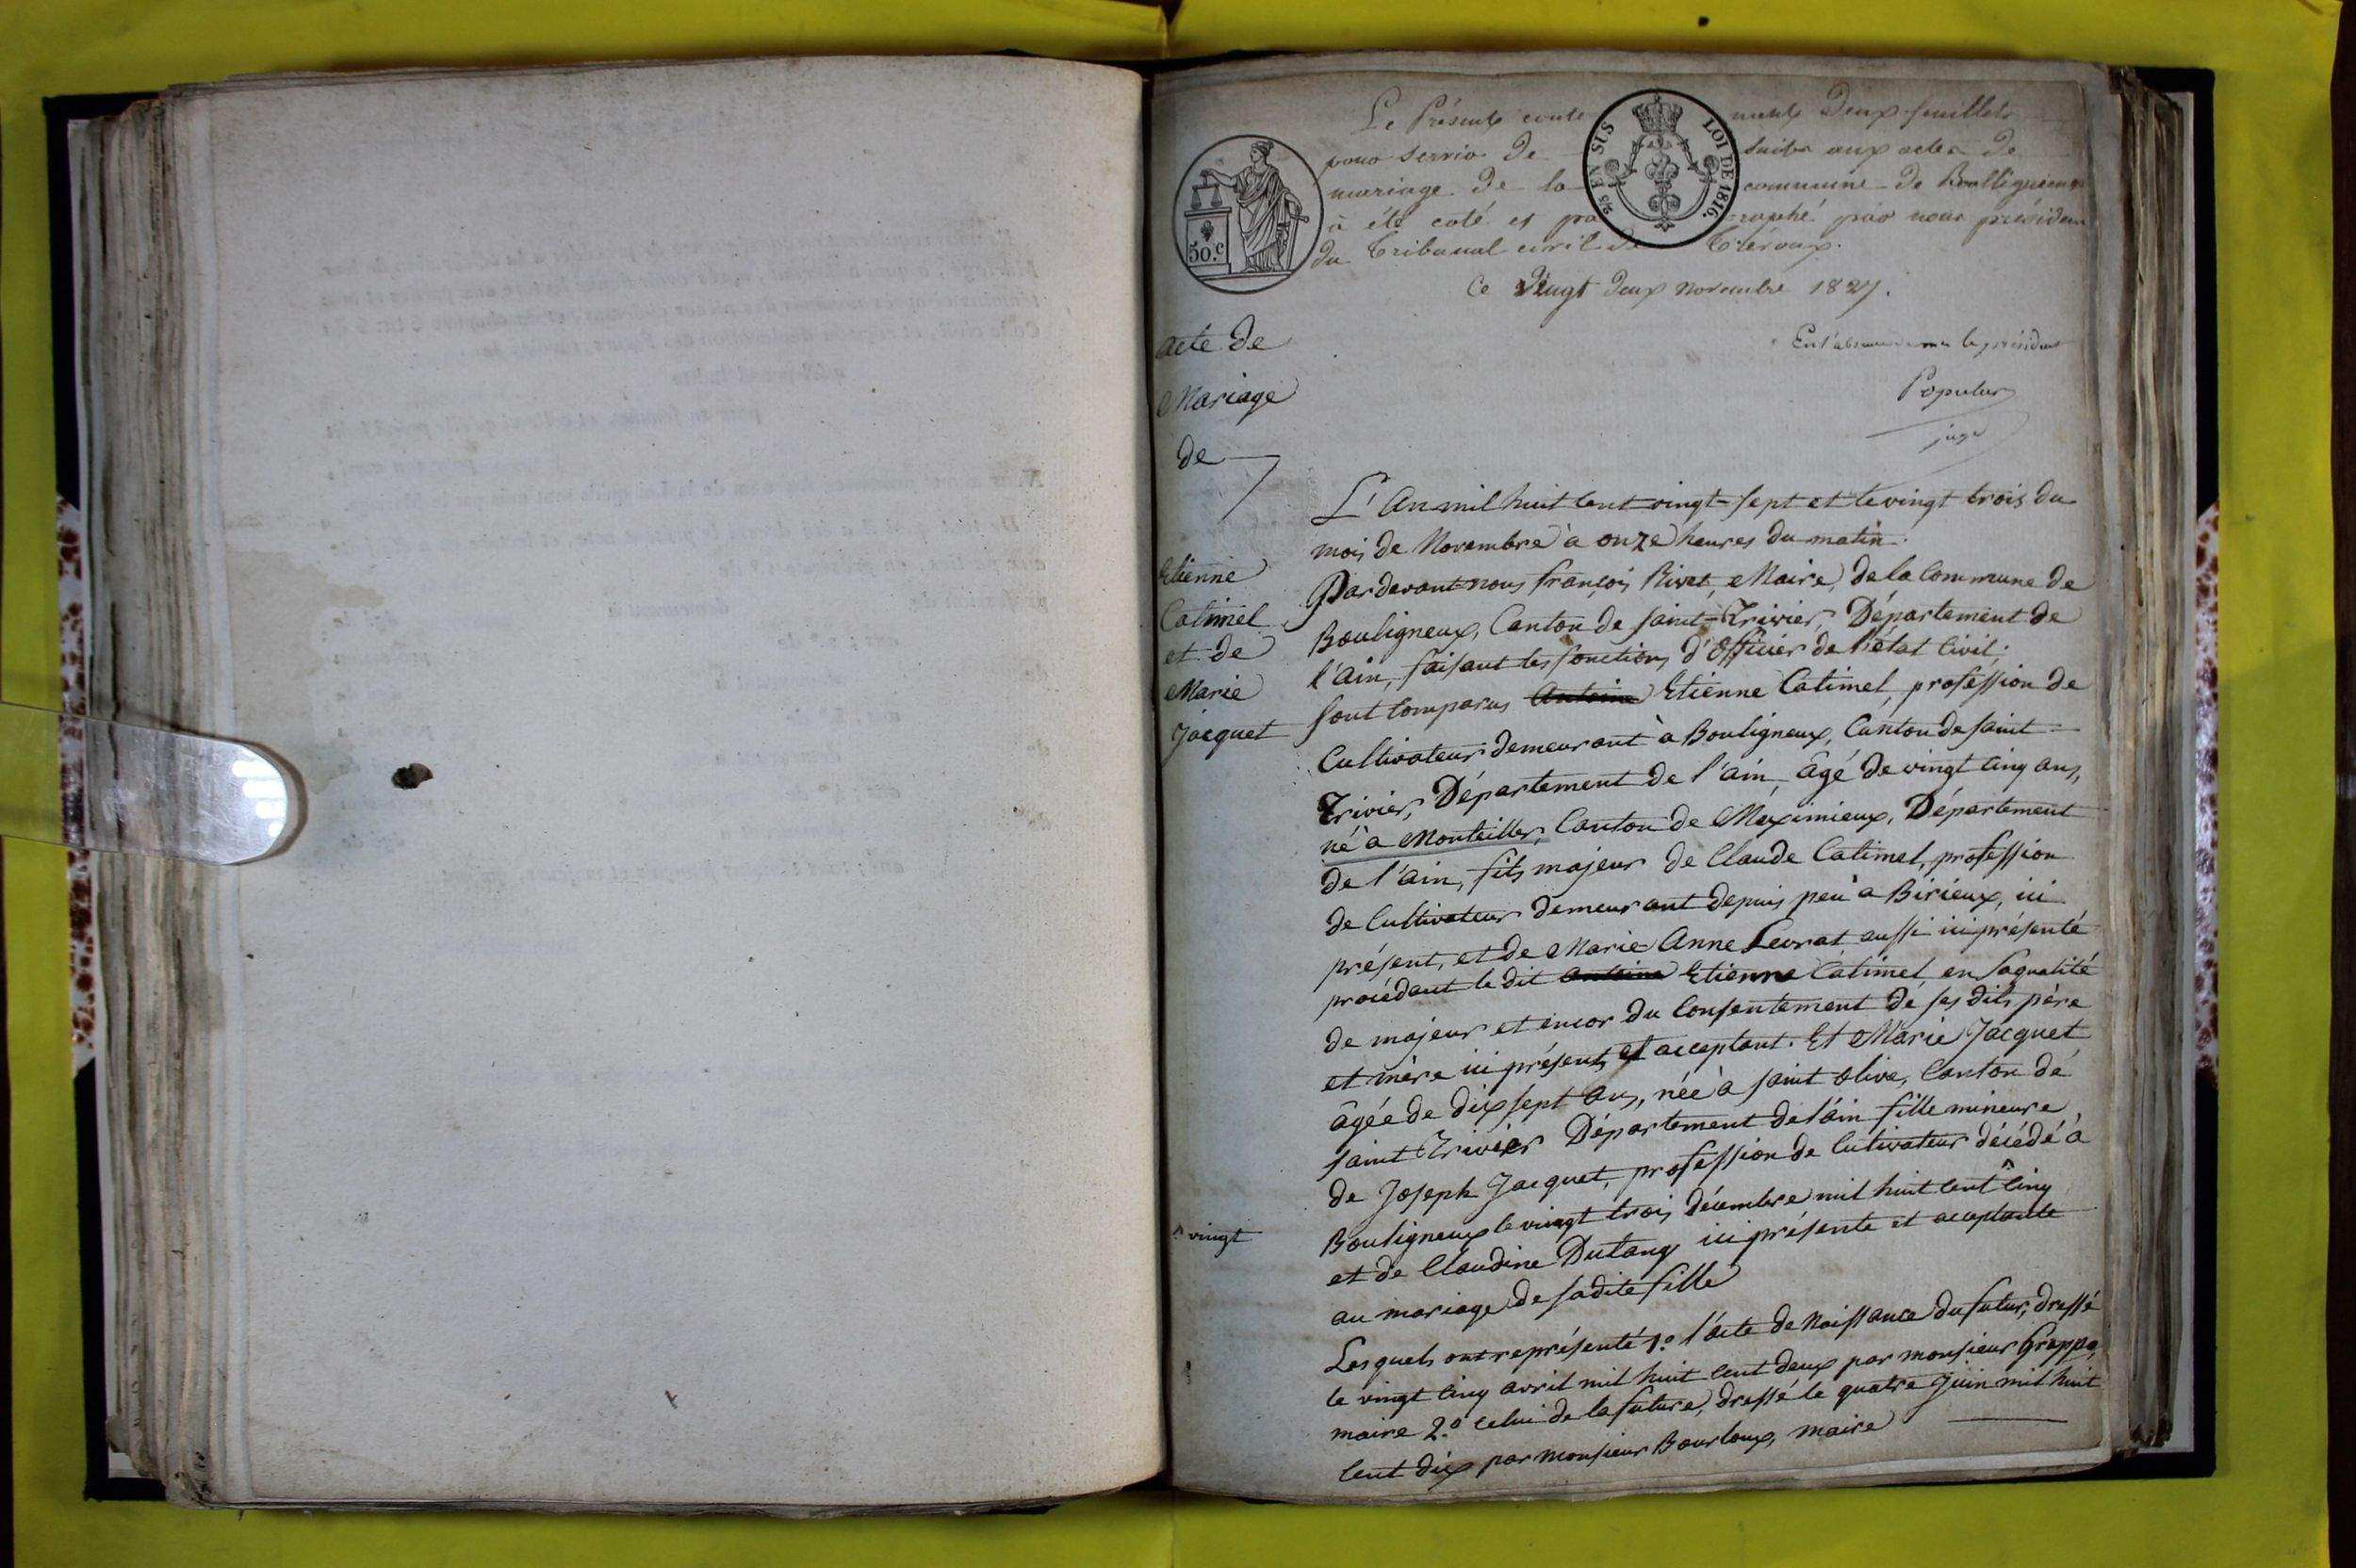 Le Présent contenant Deux feuillets
pour servir De suite aux actes De
mariage De la commune De Boulligneux
à été coté et paraphé par nous président
du Tribunal civil De Trévoux.
Ce Vingt Deux novembre 1827.
En l'absence de le président
Populus
juge
50.C
2/5 EN SUS
LOI DE 1816.
acte de
Mariage
de
Etienne
Catimel
et de
Marie
Jacquet
L'An mil huit Cent vingt-sept et le vingt trois du
mois de Novembre à onze heures du matin.
Pardevant nous françois Rivet, Maire, de la Commune de
Bouligneux, Canton de saint-Trivier, Département de
l'ain, faisant les fonctions d'Officier de l'état Civil.
sont Comparus Antoine Etienne Catimel, profession de
Cultivateur demeurant à Bouligneux, Canton de saint
Trivier, Département de l'ain, âgé de vingt cinq ans,
né à Montellier, Canton de Meximieux, Département
de l'ain, fils majeur de Claude Catimel, profession
de Cultivateur demeurant depuis peu à Birieux, ici
présent, et de Marie Anne Levrat aussi ici présente
procédant le dit Antoine Etienne Catimel en sa qualité
de majeur et encor du Consentement de ses dits père
et mère ici présents et acceptant. Et Marie Jacquet
âgée de dix sept ans, née à saint olive, Canton de
saint Trivier Département de l'ain fille mineure
de Joseph Jacquet, profession de Cultivateur décédé à
Bouligneux le vingt trois décembre mil huit cent ^ cinq
^ vingt
et de Claudine Dutang ici présente et acceptante
au mariage de sadite fille
Lesquels ont représenté 1.o l'acte de Naissance du futur, dressé
le vingt cinq avril mil huit cent deux par monsieur Greppo,
maire 2.o celui de la future, dressé le quatre Juin mil huit
cent dix par monsieur Bourloux, maire